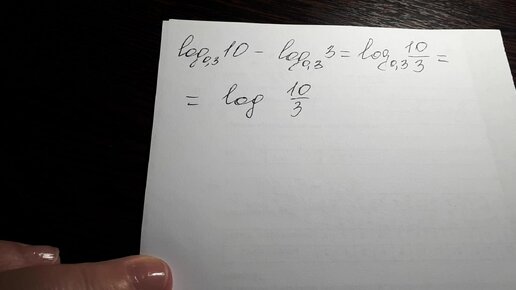 log₀,₃10 - log₀,₃3 = log₀,₃ 10/3 =
= log 10/3